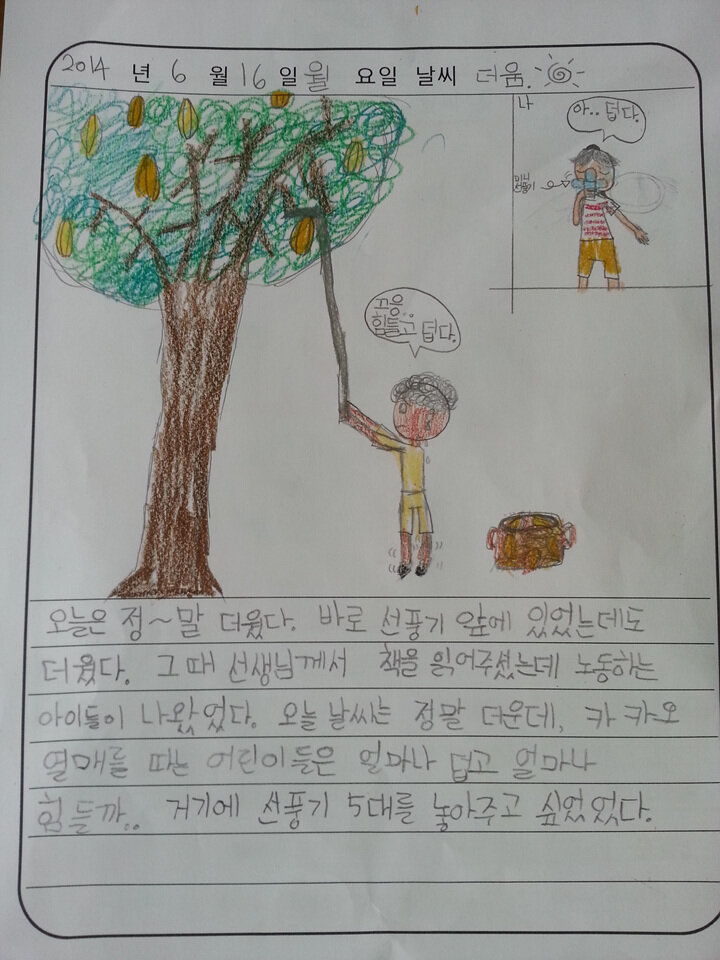 2014 년 6 월 16 일 월 요일 날씨 더움.
나
아.. 덥다.
미니
선풍기
끄응..
힘들고 덥다.
오늘은 정~말 더웠다. 바로 선풍기 앞에 있었는데도
더웠다. 그때 선생님께서 책을 읽어주셨는데 노동하는
아이들이 나왔었다. 오늘 날씨는 정말 더운데, 카카오
열매를 따는 어린이들은 얼마나 덥고 얼마나
힘들까.. 거기에 선풍기 5대를 놓아주고 싶었었다.